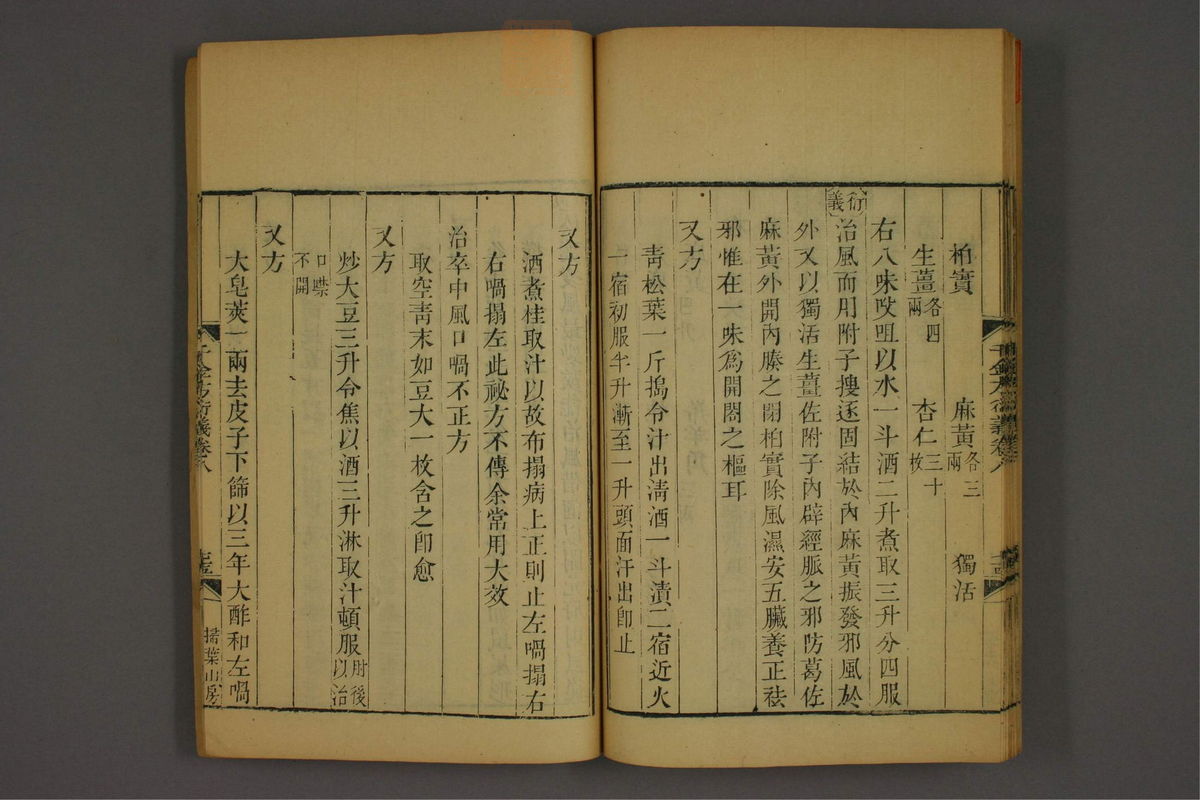 柏實　麻黃各三兩　獨活
生薑各四兩　杏仁三十枚
右八味㕮咀以水一斗酒二升煮取三升分四服
衍義
治風而用附子摟逐固結於內麻黃振發邪風於
外又以獨活生薑佐附子內辟經脈之邪防葛佐
麻黃外開內腠之閉柏實除風濕安五臟養正祛
邪惟在一味為開闔之樞耳
又方
靑松葉一斤搗令汁出淸酒一斗漬二宿近火
一宿初服半升漸至一升頭面汗出卽止
又方
酒煮桂取汁以故布搨病上正則止左喎搨右
右喎搨左此祕方不傳余常用大效
治卒中風口喎不正方
取空靑末如豆大一枚含之卽愈
又方
炒大豆三升令焦以酒三升淋取汁頓服肘後以治
口噤不開
又方
大皂莢一兩去皮子下篩以三年大酢和左喎
千金方衍義卷八
掃葉山房